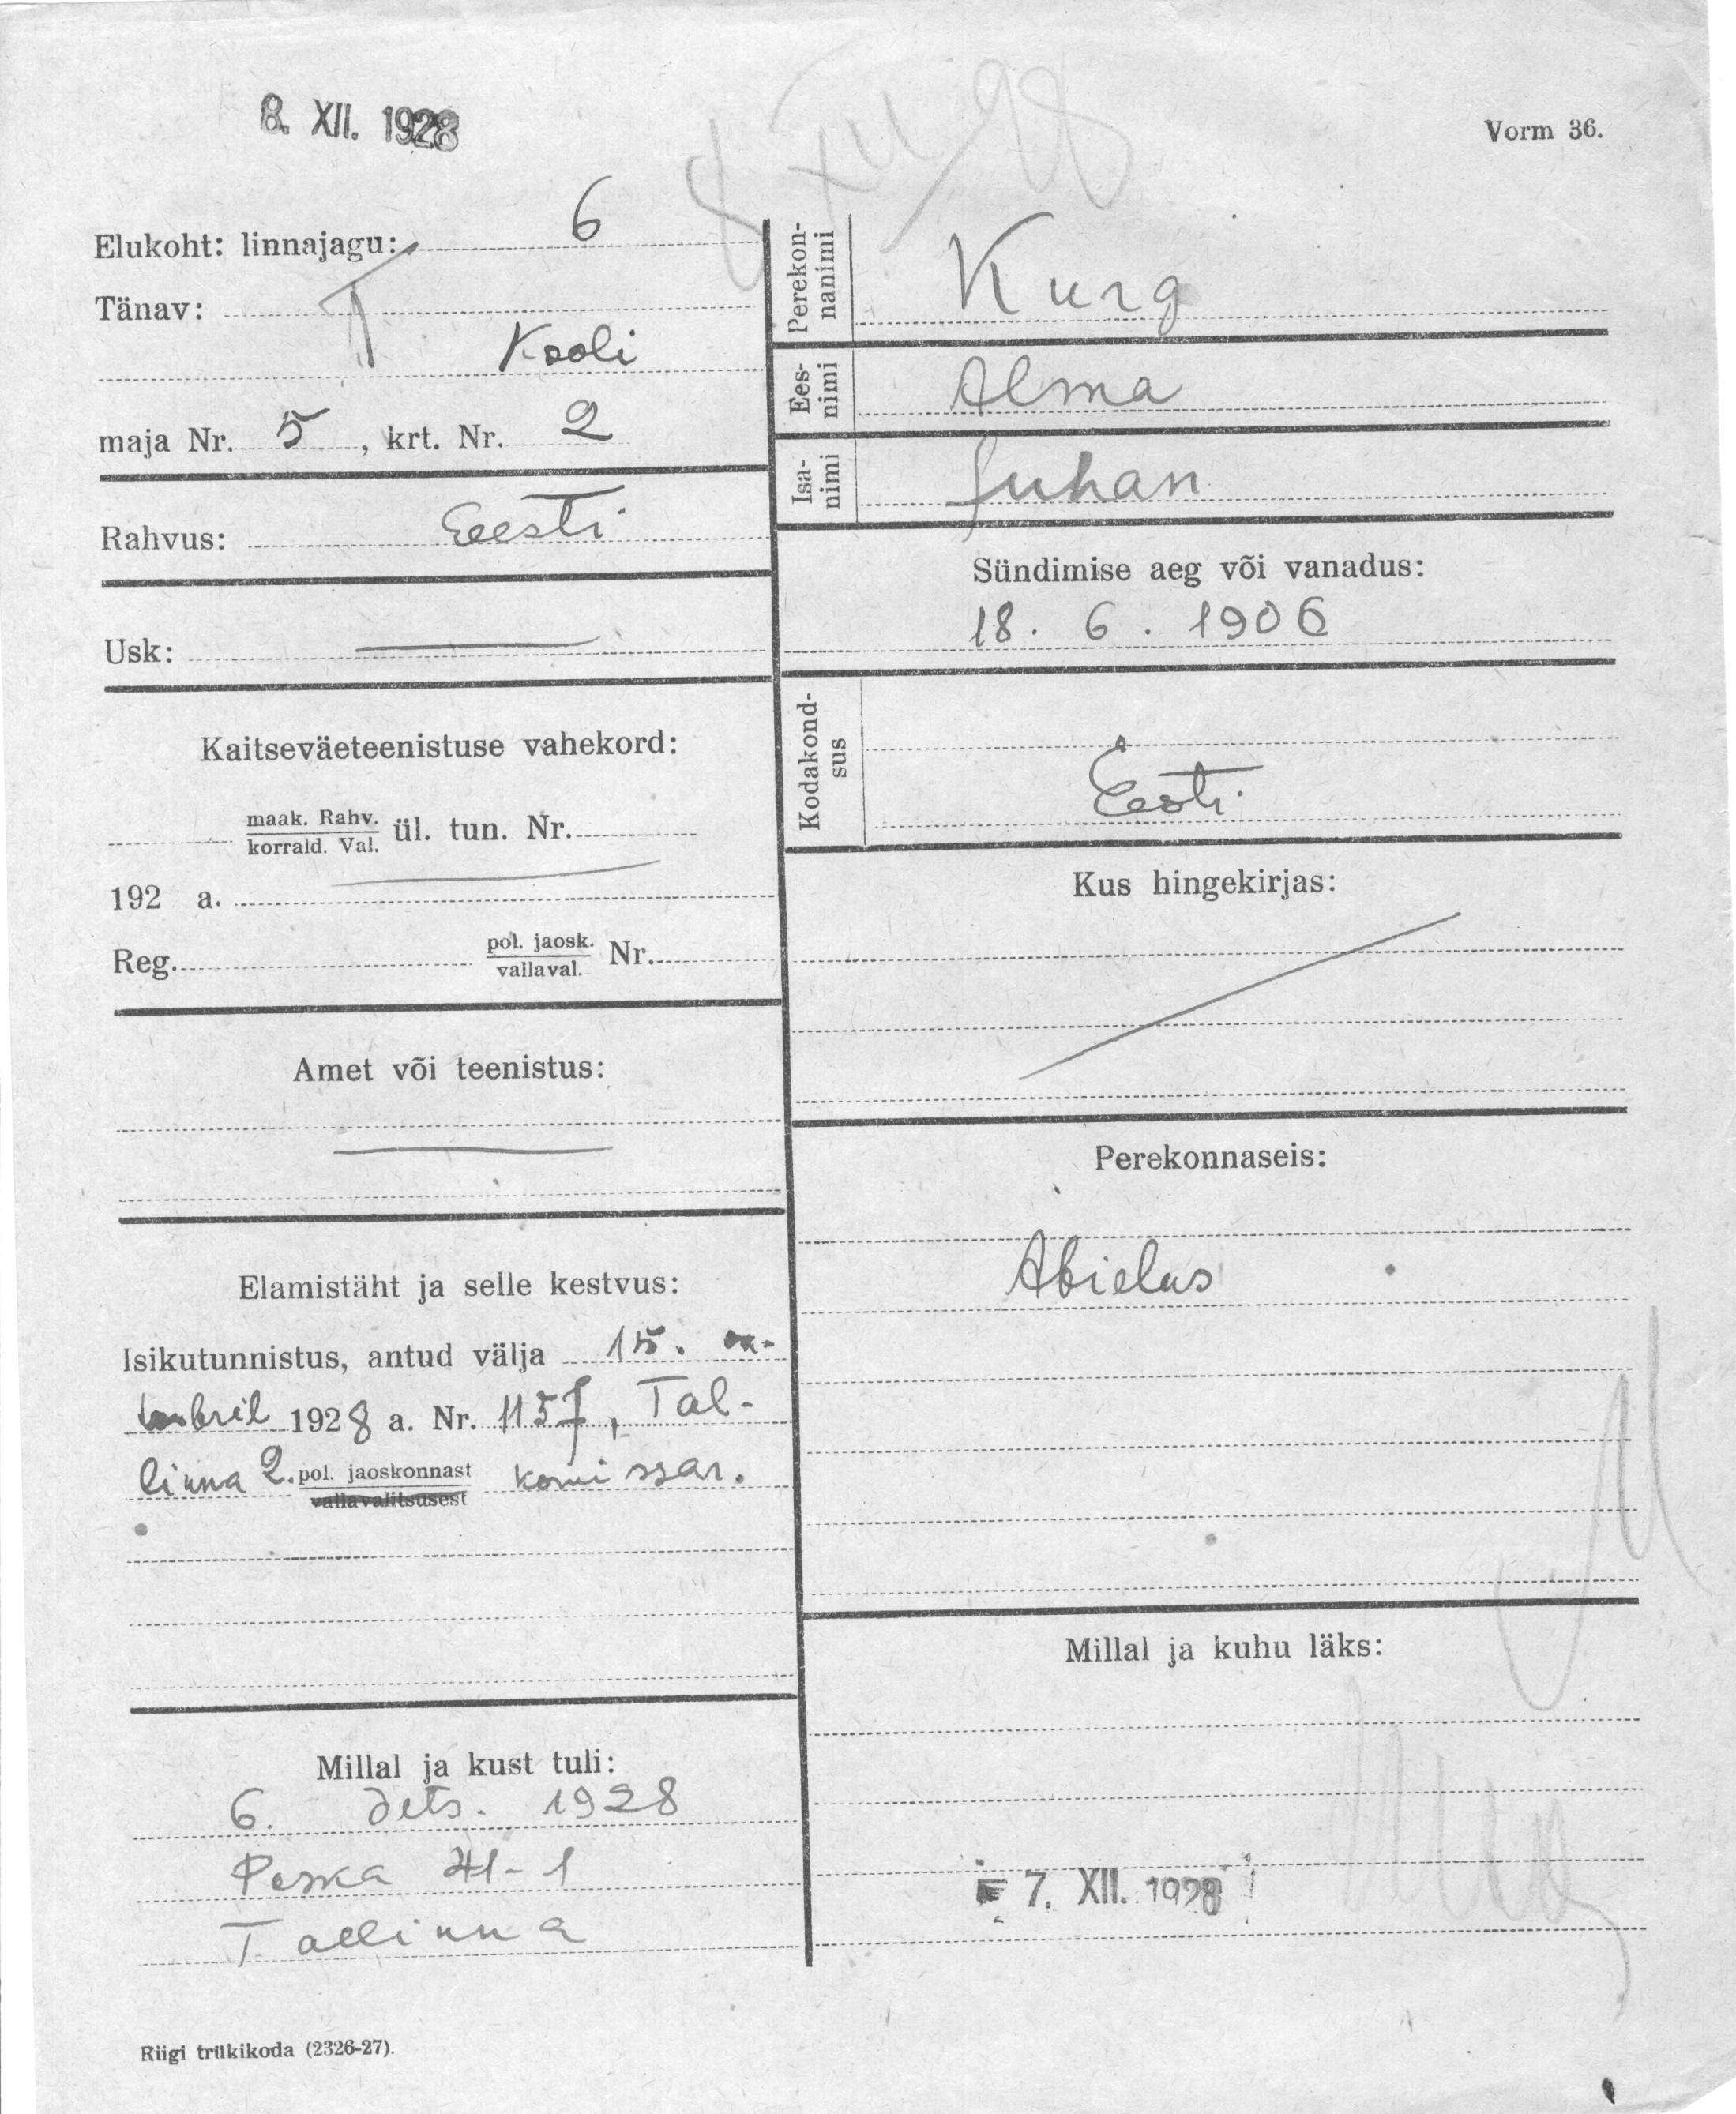 8. XII. 1928
8 XII 28
Vorm 36.
Elukoht: linnajagu: 6
Tänav:
Kooli
maja Nr. 5, krt. Nr. 2
Rahvus: Eesti
Usk: —
Kaitseväeteenistuse vahekord:
maak. Rahv.
korrald. Val. ül. tun. Nr.
192 a.
Reg. pol. jaosk.
vallaval. Nr.
Amet või teenistus:
—
Elamistäht ja selle kestvus:
Isikutunnistus, antud välja 15.
1928 a. Nr. 1157, Tal-
linna 2. pol. jaoskonnast komissar.
vallavalitsusest
Millal ja kust tuli:
6. dets. 1928
Poska 41-1
Tallinna
Riigi trükikoda (2326-27).
Perekon-
nanimi
Kurg
Ees-
nimi
Alma
Isa-
nimi
Juhan
Sündimise aeg või vanadus:
18. 6. 1906
Kodakond-
sus
Eesti
Kus hingekirjas:
Perekonnaseis:
Abielus
Millal ja kuhu läks:
7. XII. 1928